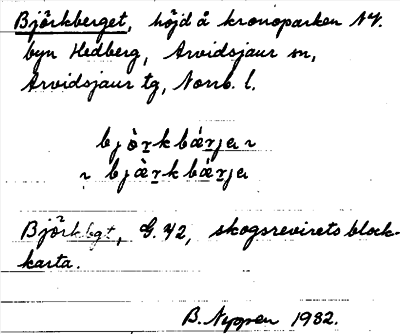 Björkberget, höjd å kronoparken NV.
byn Hedberg, Arvidsjaur sn,
Arvidsjaur tg, Norrb. l.
bjò̱rkbá̱rja ~
~ bjà̱rkbá̱rja
Björkbgt, G. 42, skogsrevirets block-
karta.
B. Nygren 1932.